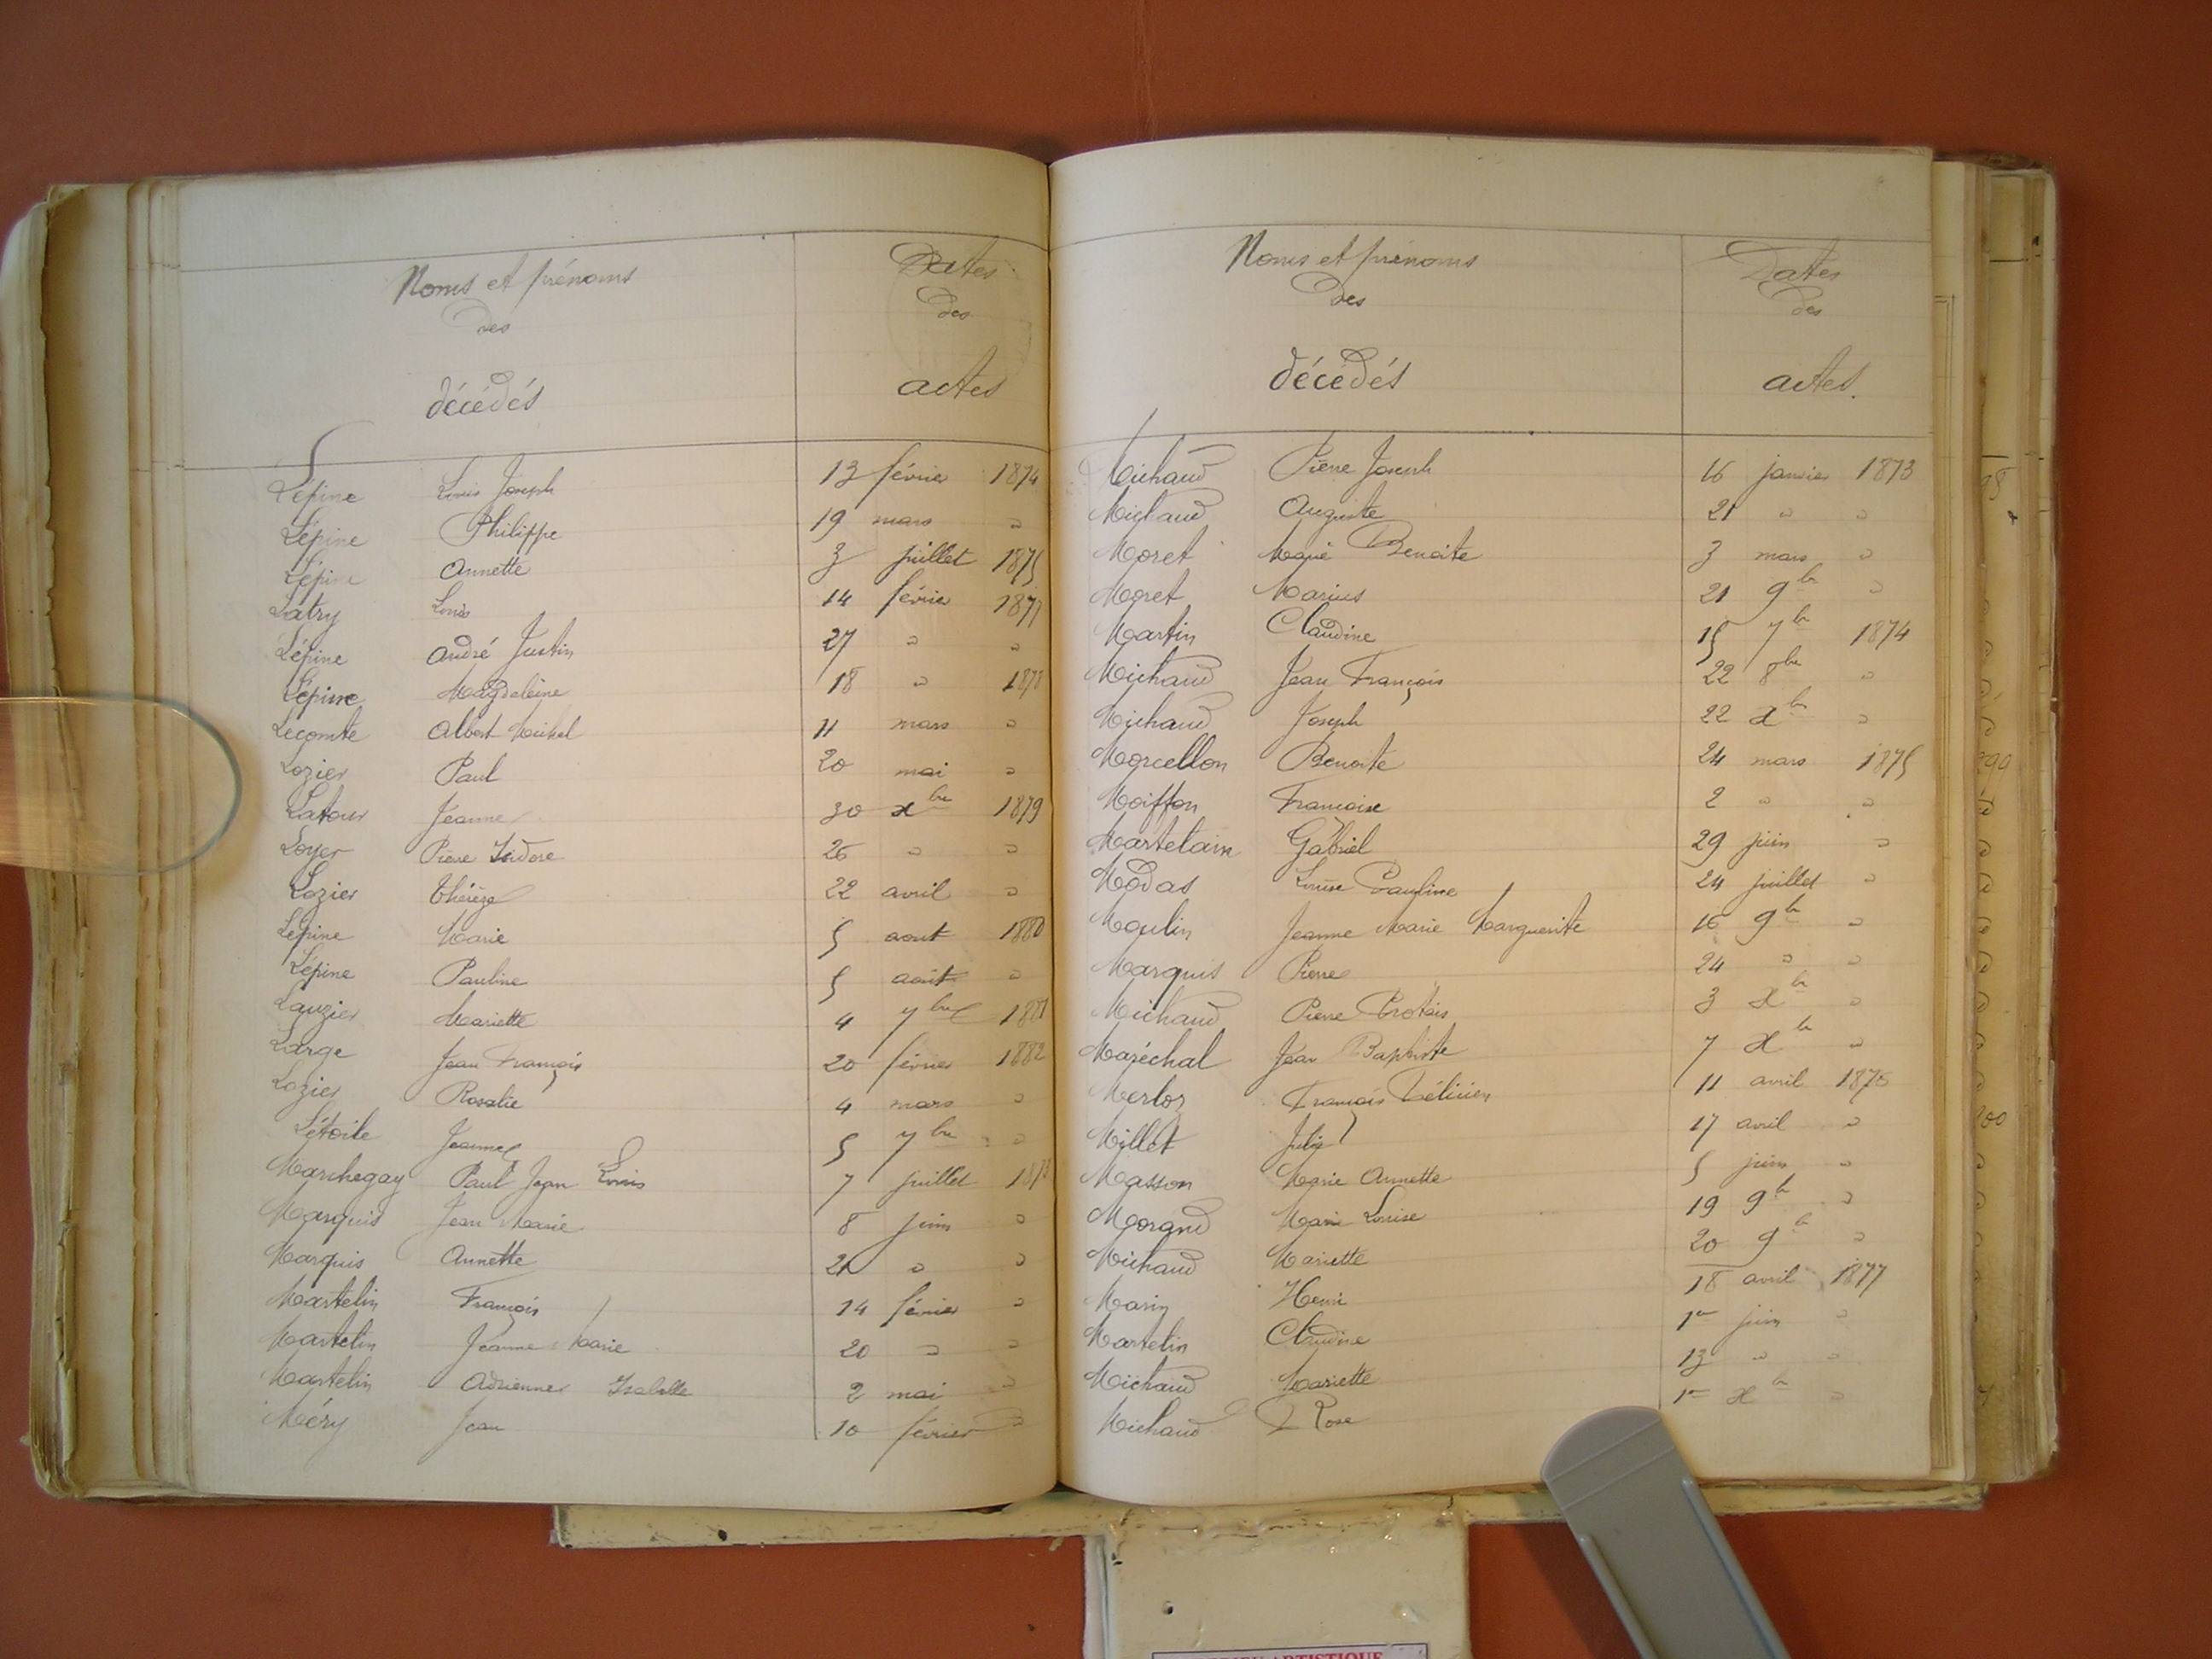 Noms et prénoms
des
décédés
Dates
des
actes
Lépine Louis Joseph 13 février 1874
Lépine Philippe 19 mars "
Lépine Annette 3 juillet 1875
Latry Louis 14 février 1877
Lépine André Justin 27 " "
Lépine Magdeleine 18 " 1878
Lecomte Albert Michel 11 mars "
Lozier Paul 20 mai "
Latour Jeanne 30 xbre 1879
Loyer Pierre Isidore 26 " "
Lozier Thérèze 22 avril "
Lépine Marie 5 aout 1880
Lépine Pauline 5 août "
Lauzier Mariette 4 7bre 1881
Large Jean François 20 février 1882
Lozier Rosalie 4 mars "
Létoile Jeanne 5 7bre "
Marchegay Paul Jean Louis 7 juillet 1873
Marquis Jean Marie 8 juin "
Marquis Annette 21 " "
Martelin François 14 février "
Martelin Jeanne Marie 20 " "
Martelin Adrienne Isabelle 2 mai "
Méry Jean 10 février "
Noms et prénoms
des
décédés
Dates
des
actes.
Michaud Pierre Joseph 16 janvier 1873
Michaud Auguste 21 " "
Moret Marie Benoite 3 mars "
Moret Marius 21 9br "
Martin Claudine 15 7br 1874
Michaud Jean François 22 8bre "
Michaud Joseph 22 xbr "
Morcellon Benoite 24 mars 1875
Moiffon Francoise 2 " "
Martelain Gabriel 29 juin "
Modas Louise Pauline 24 juillet "
Moulin Jeanne Marie Marguerite 16 9br "
Marquis Pierre 24 " "
Michaud Pierre Protais 3 xbr "
Maréchal Jean Baptiste 7 xbr "
Merloz François Félicien 11 avril 1876
Millet Julie 17 avril "
Masson Marie Annette 5 juin "
Morand Marie Louise 19 9br "
Michaud Mariette 20 9b "
Marin Henri 18 avril 1877
Martelin Claudine 1er juin "
Michaud Mariette 13 " "
Michaud Rose 1er xbr "